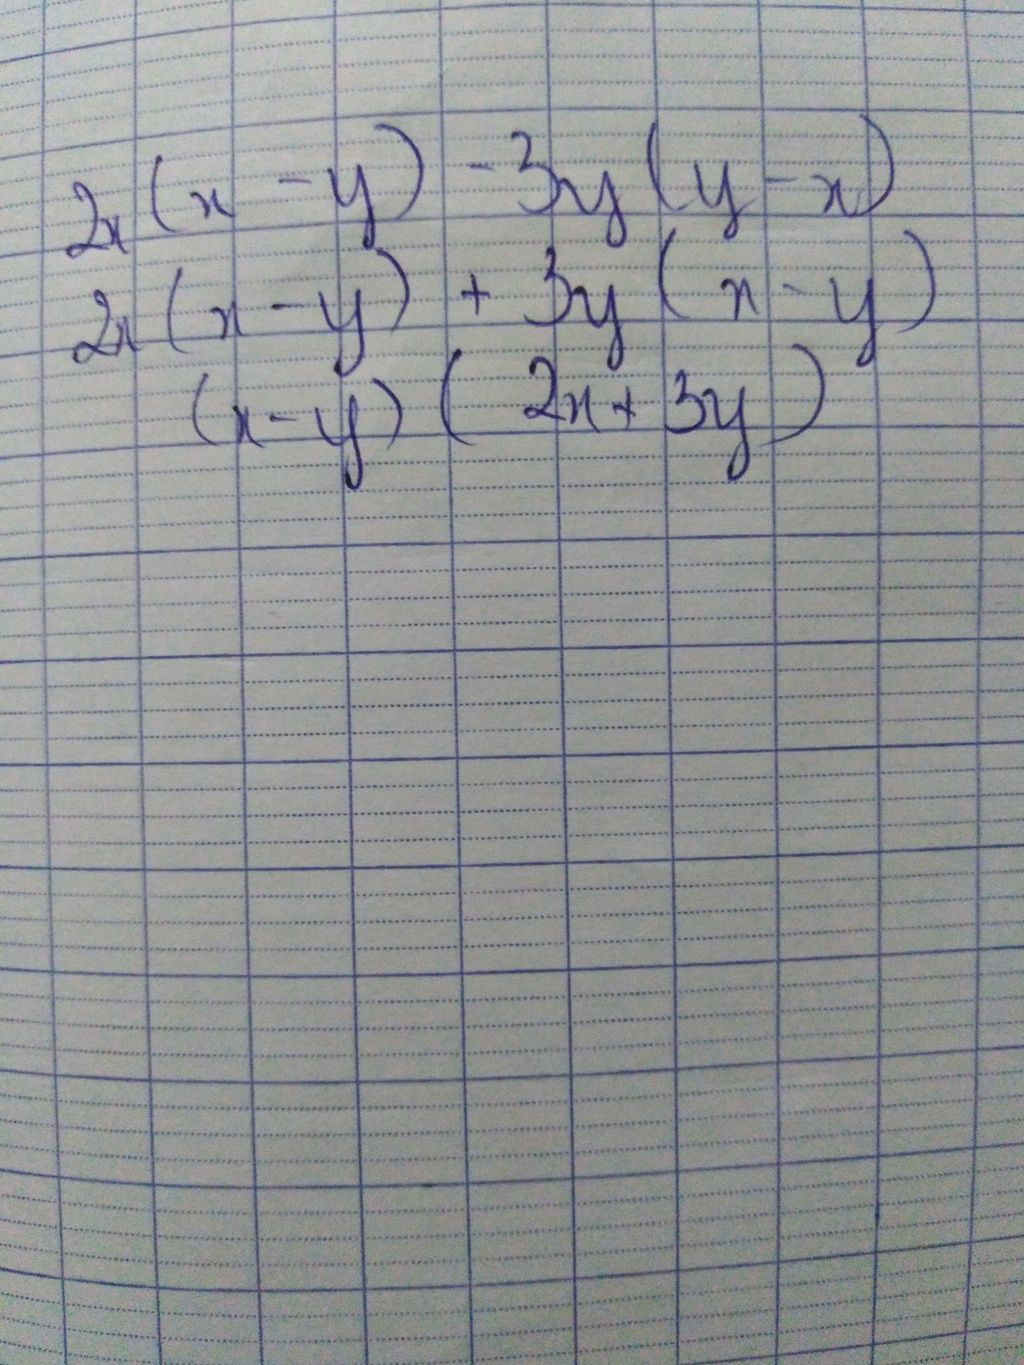 2x(x - y) - 3y(y - x)
2x(x - y) + 3y(x - y)
(x - y)(2x + 3y)